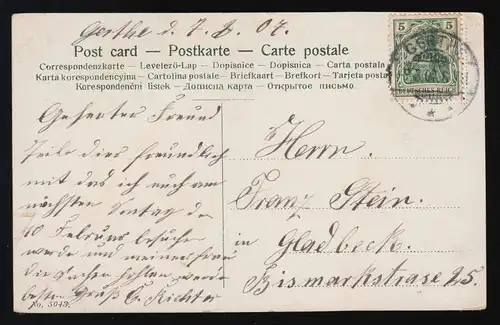 Gerthe d. 7. 2. 07.
Post card — Postkarte — Carte postale
Correspondenzkarte — Levelező-Lap — Dopisnice — Dopisnica — Carta postala
Karta korespondencyjna — Cartolina postale — Briefkaart — Brefkort — Tarjeta postal
Korespondenční lístek — Дописна карта — Открытое письмо
5 5
DEUTSCHES REICH
Geehrter Freund
Teile dies freundlich
mit das ich euch am
nächsten Sontag den
10 Februar besuche
werde und meiner Frau
die Sachen hohlen werde
besten Gruß G. Richter
No. 5043.
Herrn
Franz Stein
in Gladbeck.
Bismarkstrase 25.